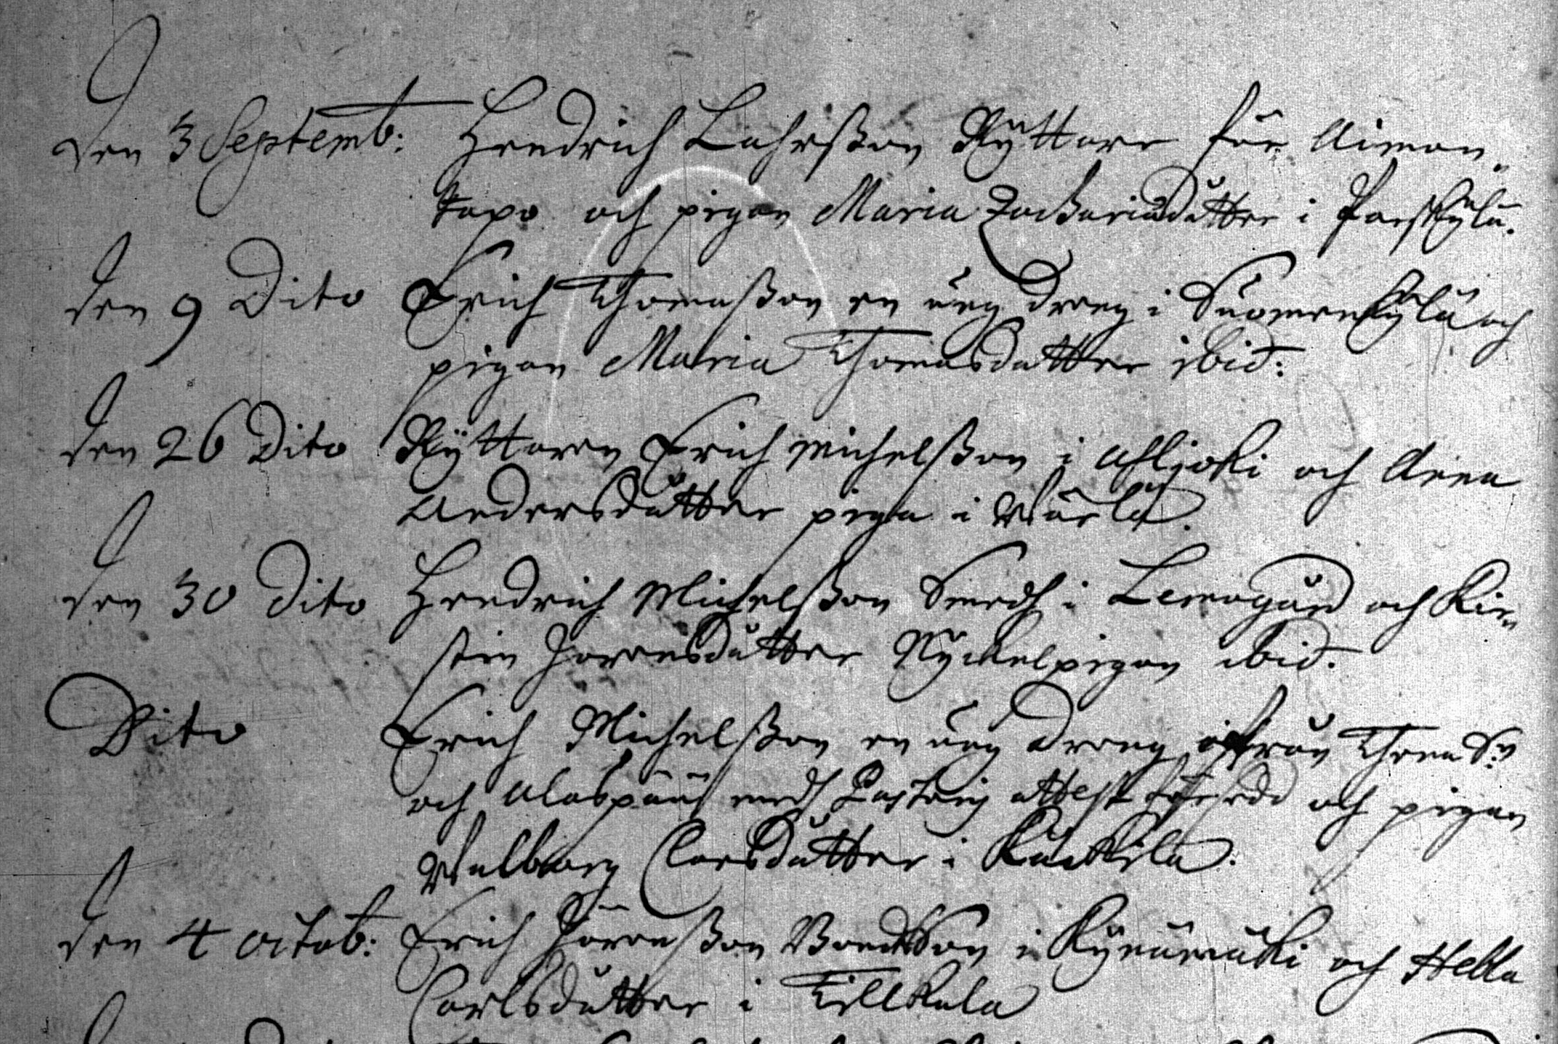 Den 3 Septemb: Hendrich Lahrsson Ryttare för Aiman-
tapo och pigan Maria Zachariædutter i
Den 9 Dito Erich Thomasson en ung dreng i Suomenkylä och
pigan Maria Thomasdutter ibid:
Den 26 Dito Ryttaren Erich Michelsson i Ahljoki och Anna
Andersdutter piga i
Den 30 Dito Hendrich Michelsson Smedh i Lemogård och Kir-
stin Jörensdutter Nyckelpigan ibid.
Dito Erich Michelsson en ung dreng ifrån
och medh Pastoris attest och pigan
Walborg Claesdutter i
Den 4 octob: Erich Jörensson Bondeson i Kynämäki och Hebla
Carlsdutter i Tillkala